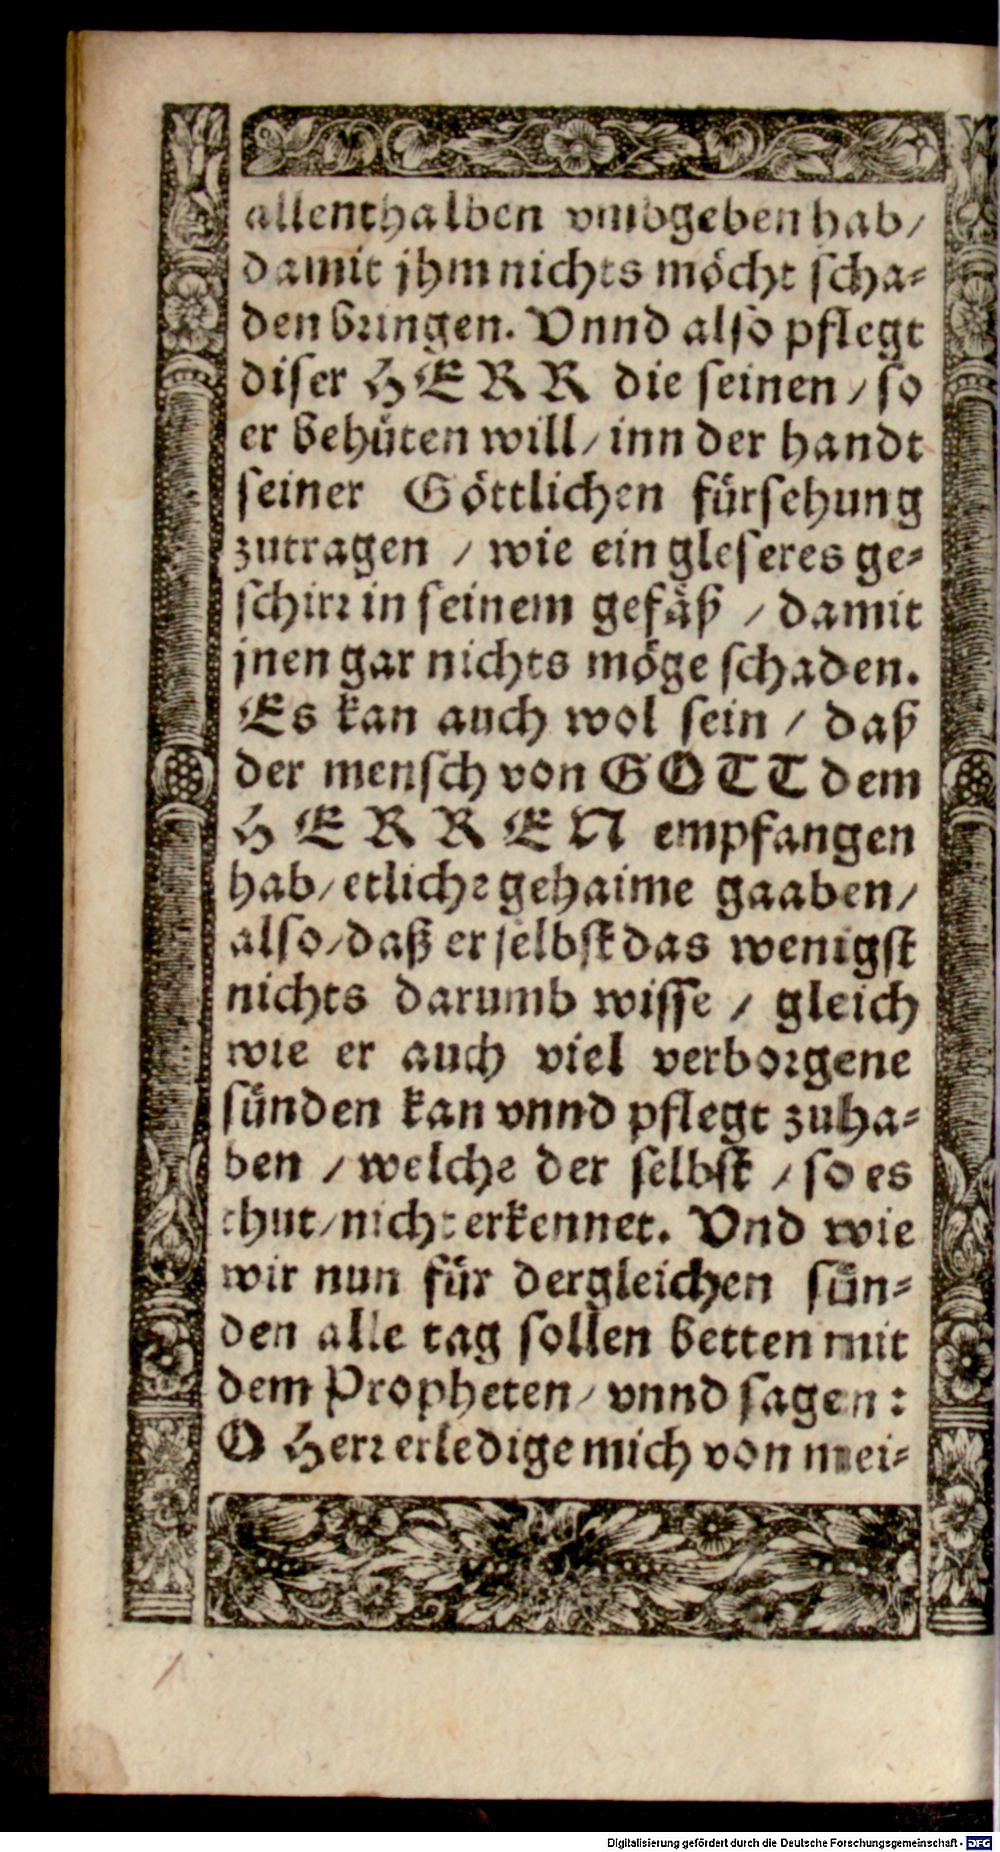 allenthalben vmbgeben hab/
damit jhm nichts möcht scha-
den bringen. Vnnd also pflegt
diser HERR die seinen / so
er behüten will / inn der handt
seiner Göttlichen fürsehung
zutragen / wie ein gleseres ge-
schirr in seinem gefäß / damit
jnen gar nichts möge schaden.
Es kan auch wol sein / daß
der mensch von GOTT dem
HERREN empfangen
hab / etliche gehaime gaaben /
also / daß er selbst das wenigst
nichts darumb wisse / gleich
wie er auch viel verborgene
sünden kan vnnd pflegt zuha-
ben / welche der selbst / so es
thut / nicht erkennet. Vnd wie
wir nun für dergleichen sün-
den alle tag sollen betten mit
dem Propheten / vnnd sagen:
O Herr erledige mich von mei-
Digitalisierung gefördert durch die Deutsche Forschungsgemeinschaft - DFG